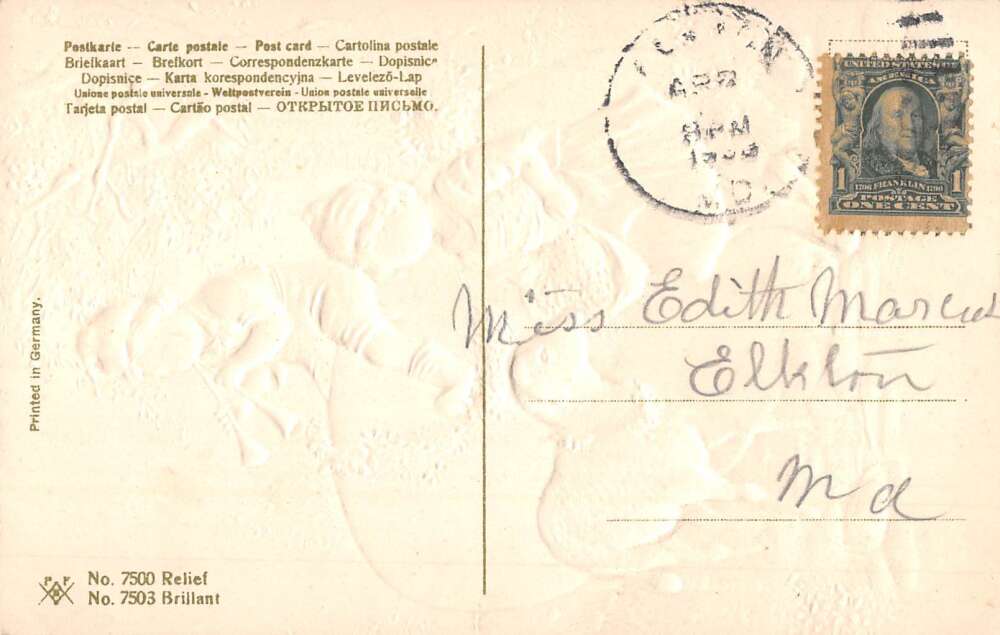 Postkarte -- Carte postale — Post card — Cartolina postale
Briefkaart — Brefkort — Correspondenzkarte — Dopisnic
Dopisnice — Karta korespondencyjna — Levelező-Lap
Unione postale universale - Weltpostverein - Union postale universelle
Tarjeta postal — Cartão postal — ОТКРЫТОЕ ПИСЬМО.
APR
8 PM
MD.
UNITED STATES
1706 FRANKLIN 1790
1 1
POSTAGE
ONE CENT
Miss Edith Marcus
Elkton
Md
Printed in Germany.
No. 7500 Relief
No. 7503 Brillant